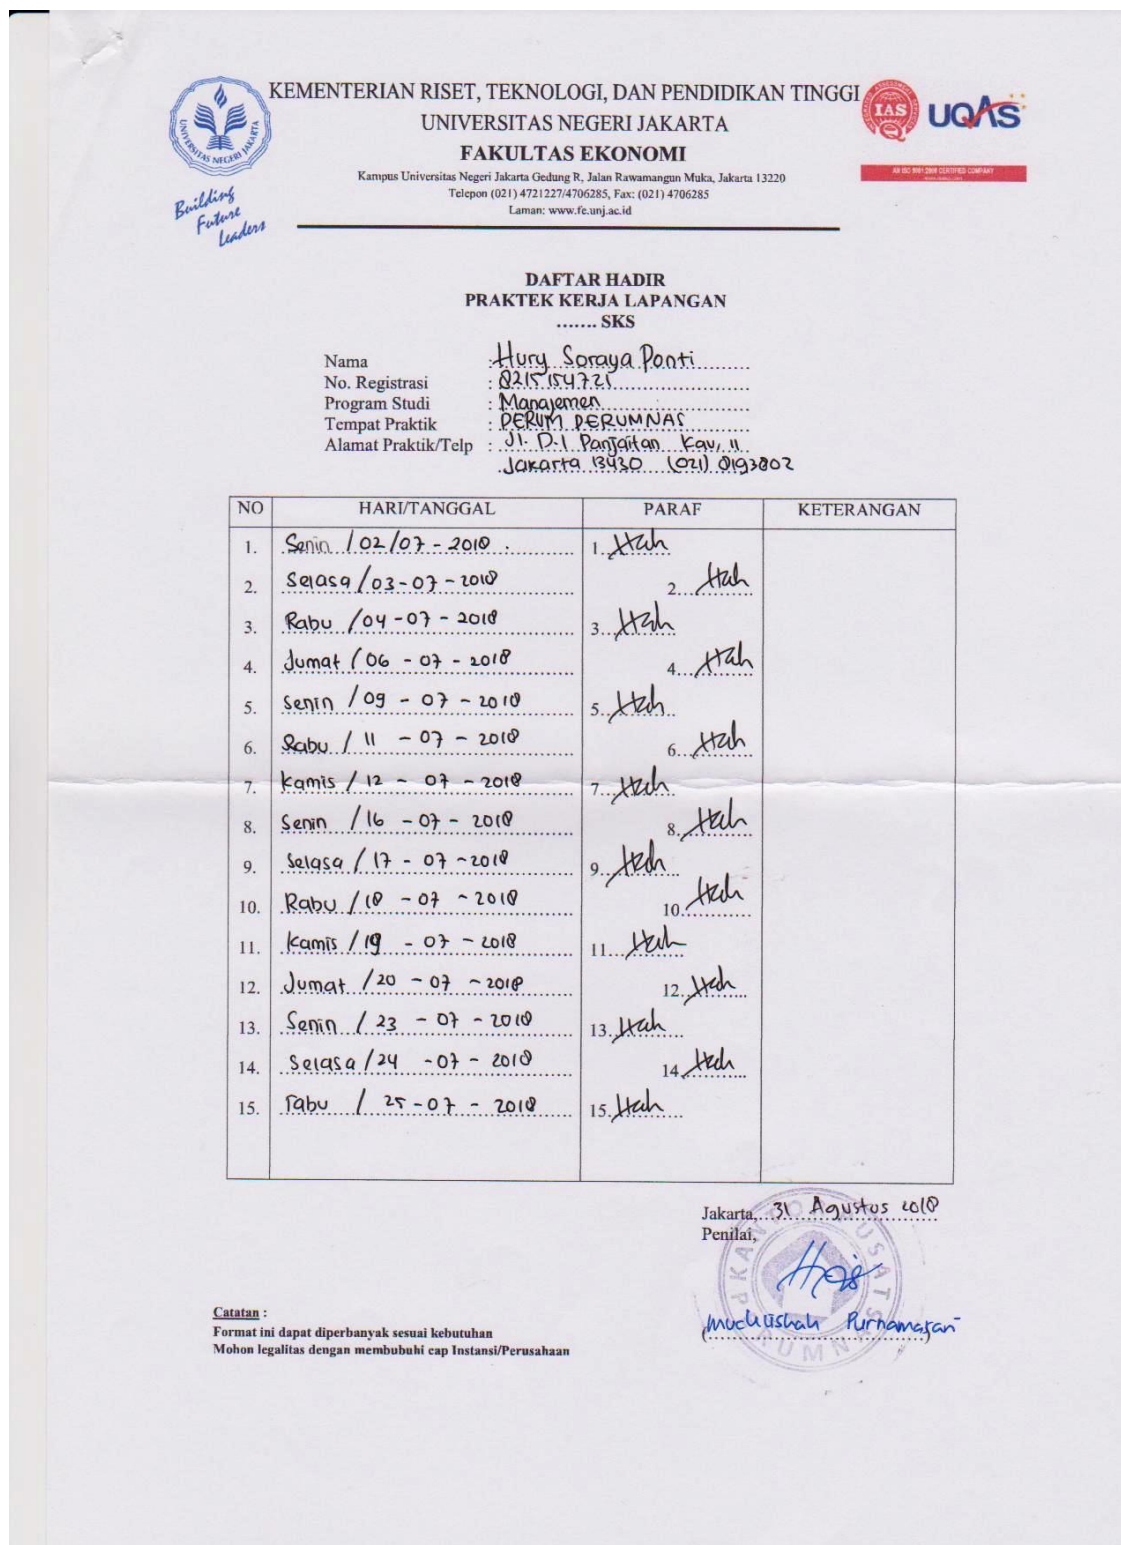 KEMENTERIAN RISET, TEKNOLOGI, DAN PENDIDIKAN TINGGI
UNIVERSITAS NEGERI JAKARTA
FAKULTAS EKONOMI
Kampus Universitas Negeri Jakarta Gedung R, Jalan Rawamangun Muka, Jakarta 13220
Telepon (021) 4721227/4706285, Fax: (021) 4706285
Laman: www.fe.unj.ac.id
UNIVERSITAS NEGERI JAKARTA
Building
Future
Leaders
IAS
UQAS
AN ISO 9001:2008 CERTIFIED COMPANY
DAFTAR HADIR
PRAKTEK KERJA LAPANGAN
....... SKS
Nama : Hury Soraya Ponti
No. Registrasi : 8215154721
Program Studi : Manajemen
Tempat Praktik : PERUM PERUMNAS
Alamat Praktik/Telp : Jl. D.I Panjaitan Kav, 11
Jakarta 13430 (021) 8193802
NO HARI/TANGGAL PARAF KETERANGAN
1. Senin /02/07-2018 . 1.
2. Selasa/03-07-2018 2.
3. Rabu /04-07-2018 3.
4. Jumat /06-07-2018 4.
5. Senin /09-07-2018 5.
6. Rabu / 11-07-2018 6.
7. Kamis / 12-07-2018 7.
8. Senin /16-07-2018 8.
9. Selasa / 17-07-2018 9.
10. Rabu /18-07-2018 10.
11. Kamis /19-07-2018 11.
12. Jumat /20-07-2018 12.
13. Senin / 23-07-2018 13.
14. Selasa/24-07-2018 14.
15. rabu / 25-07-2018 15.
Jakarta, 31 Agustus 2018
Penilai,
KANTOR PUSAT
(Muchlishah Purnamasari)
Catatan :
Format ini dapat diperbanyak sesuai kebutuhan
Mohon legalitas dengan membubuhi cap Instansi/Perusahaan